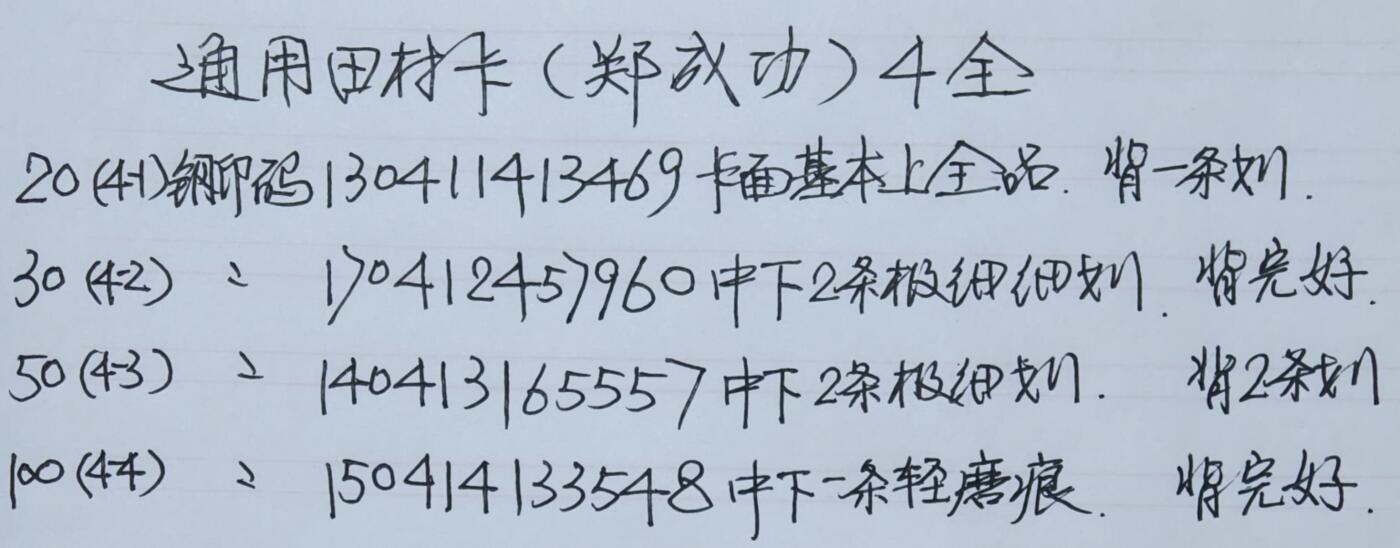 通用田村卡（郑成功）4全
20(4-1)钢印码130411413469卡面基本上全品. 背一条划.
30(4-2) 〃 170412457960中下2条极细细划. 背完好.
50(4-3) 〃 140413165557中下2条极细划. 背2条划
100(4-4) 〃 150414133548中下一条轻磨痕. 背完好.